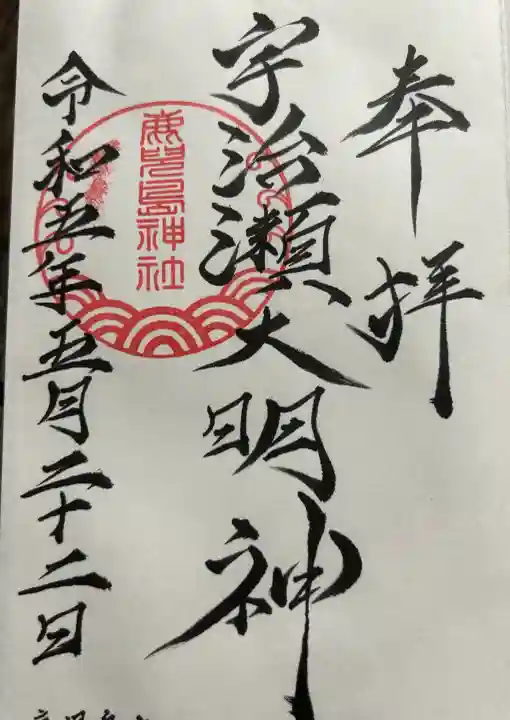 奉拝
宇治瀬大明神
鹿児島神社
令和五年五月二十二日